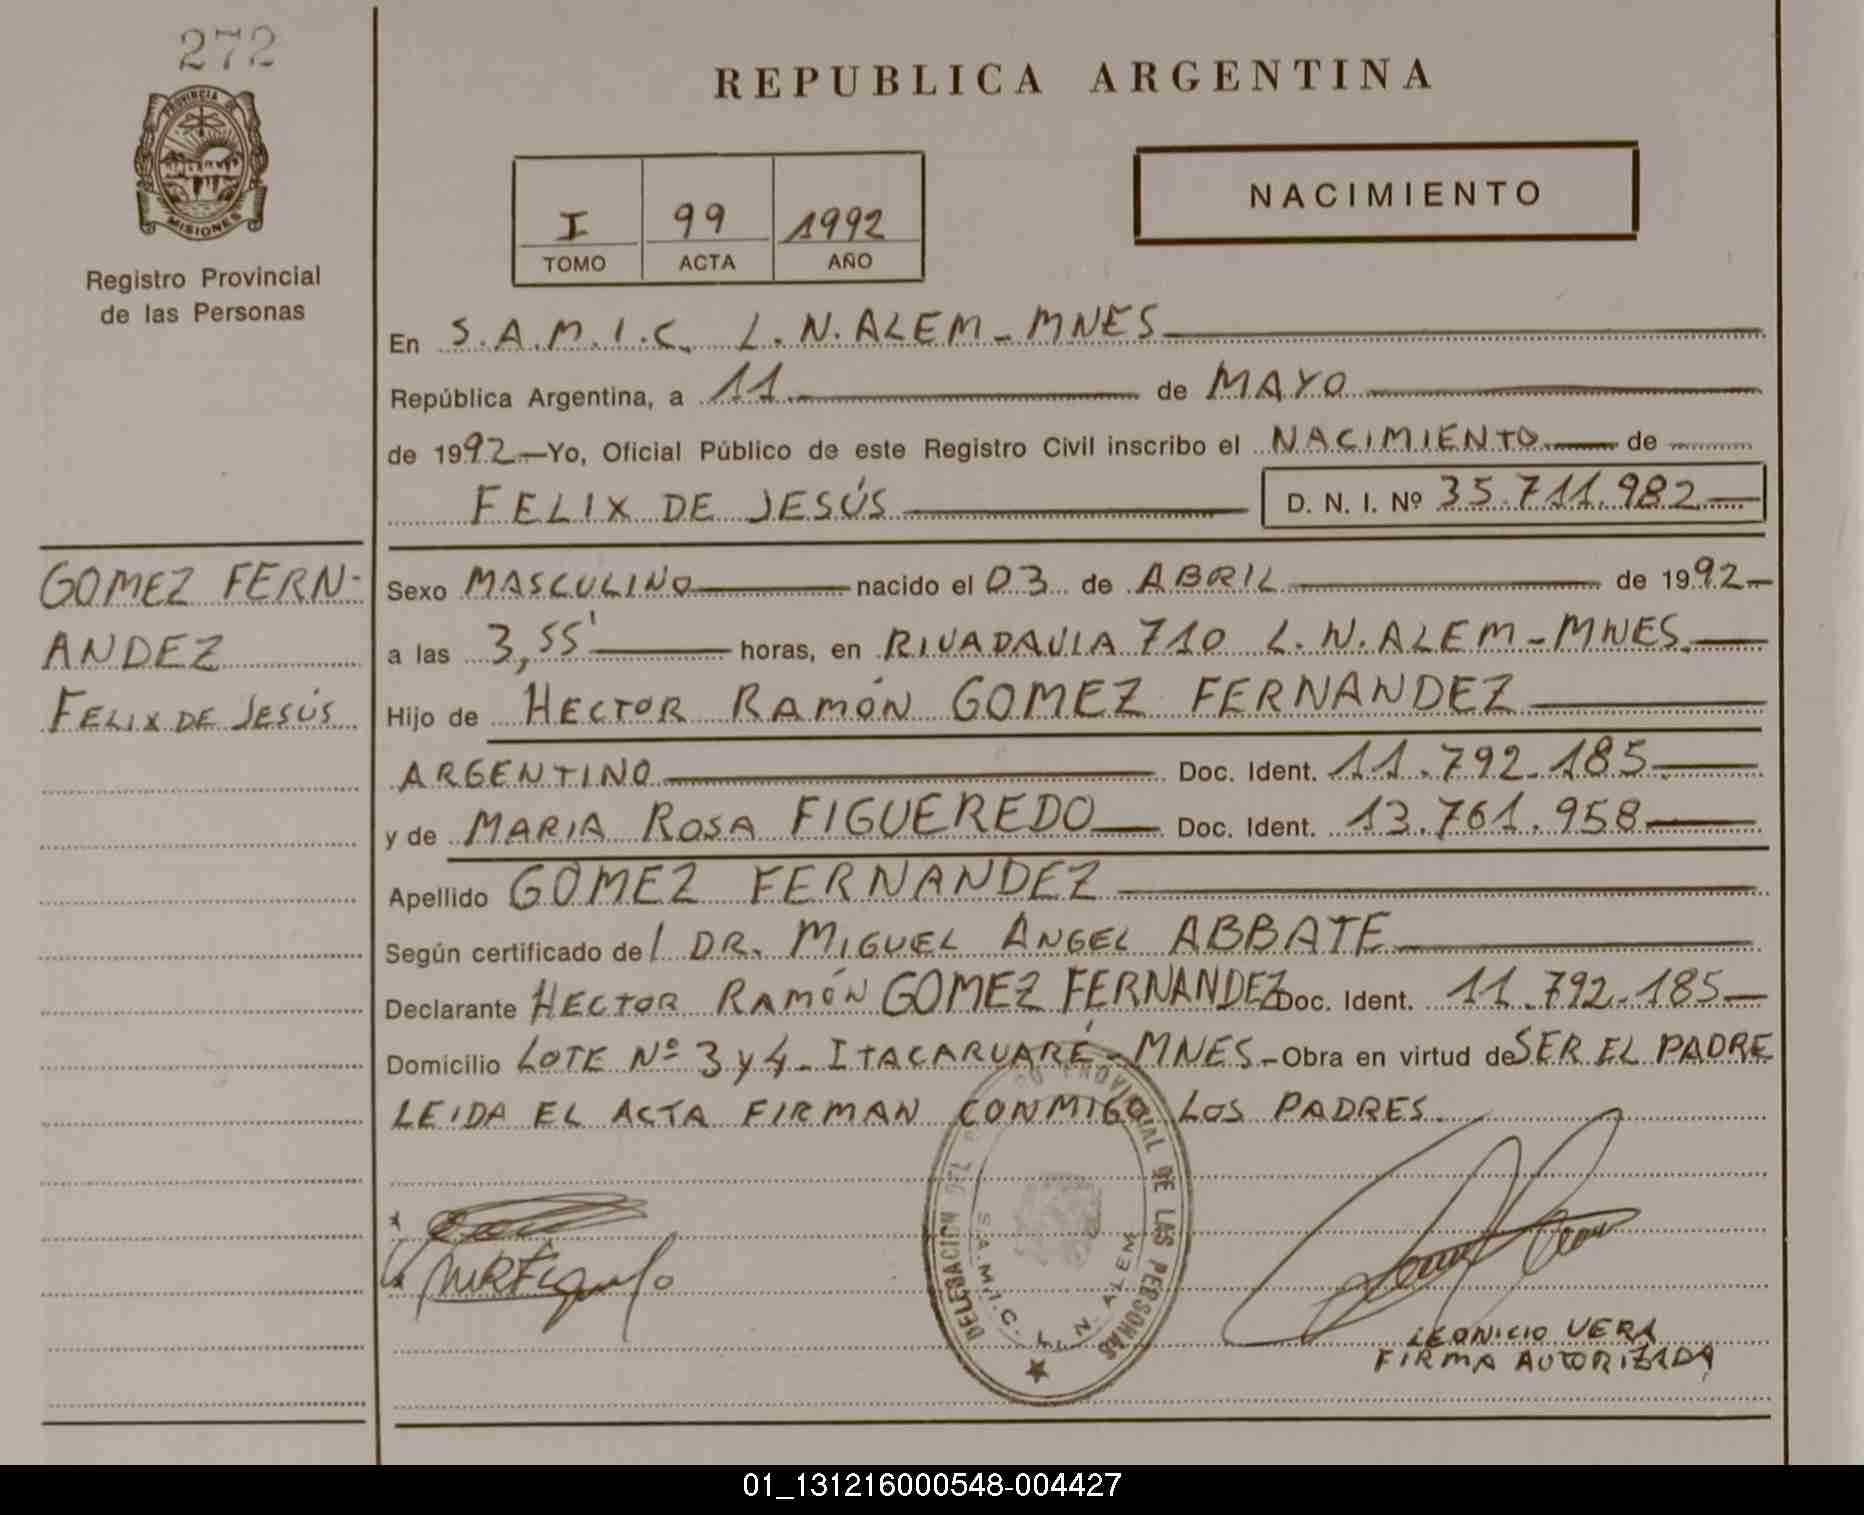 272
PROVINCIA DE
MISIONES
Registro Provincial
de las Personas
GOMEZ FERN-
ANDEZ
FELIX DE JESÚS
REPUBLICA ARGENTINA
I 99 1992
TOMO ACTA AÑO
NACIMIENTO
En S.A.M.I.C. L.N.ALEM-MNES
República Argentina, a 11 de MAYO
de 1992-Yo, Oficial Público de este Registro Civil inscribo el NACIMIENTO de
FELIX DE JESÚS D. N. I. Nº 35.711.982
Sexo MASCULINO nacido el 03 de ABRIL de 1992-
a las 3,55' horas, en RIVADAVIA 710 L.N.ALEM-MNES.
Hijo de HECTOR RAMÓN GOMEZ FERNANDEZ
ARGENTINO Doc. Ident. 11.792.185
y de MARIA ROSA FIGUEREDO Doc. Ident. 13.761.958
Apellido GOMEZ FERNANDEZ
Según certificado del DR. MIGUEL ANGEL ABBATE
Declarante HECTOR RAMÓN GOMEZ FERNANDEZ Doc. Ident. 11.792.185
Domicilio LOTE Nº 3 y 4-ITACARUARÉ-MNES-Obra en virtud de SER EL PADRE
LEIDA EL ACTA FIRMAN CONMIGO LOS PADRES.
DELEGACION DEL PROVINCIAL DE LAS PERSONAS
S.A.M.I.C. L.N. ALEM
LEONICIO VERA
FIRMA AUTORIZADA
01_131216000548-004427